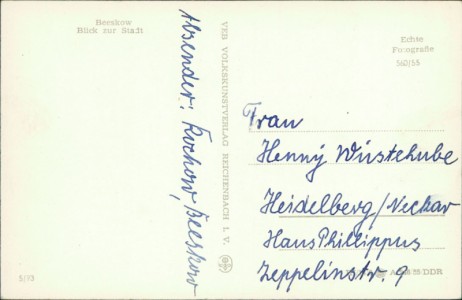 Beeskow
Blick zur Stadt
Echte
Fotografie
560/55
Absender: Kuchow, Beeskow
VEB VOLKSKUNSTVERLAG REICHENBACH I. V.
Frau
Henny Wüstehube
Heidelberg/Neckar
Haus Philippus
Zeppelinstr. 9
5/73
DDR